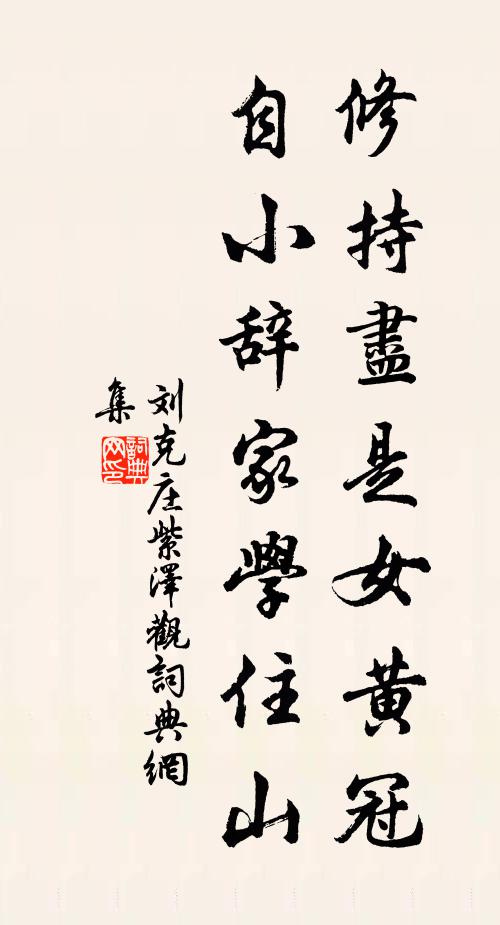 修持盡是女黃冠
自小辞家學住山
刘克庄紫澤觀詞典網
集
詞典网印